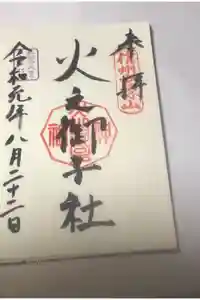 奉拝
信州戸隠山
火之御子社
令和元年八月二十二日